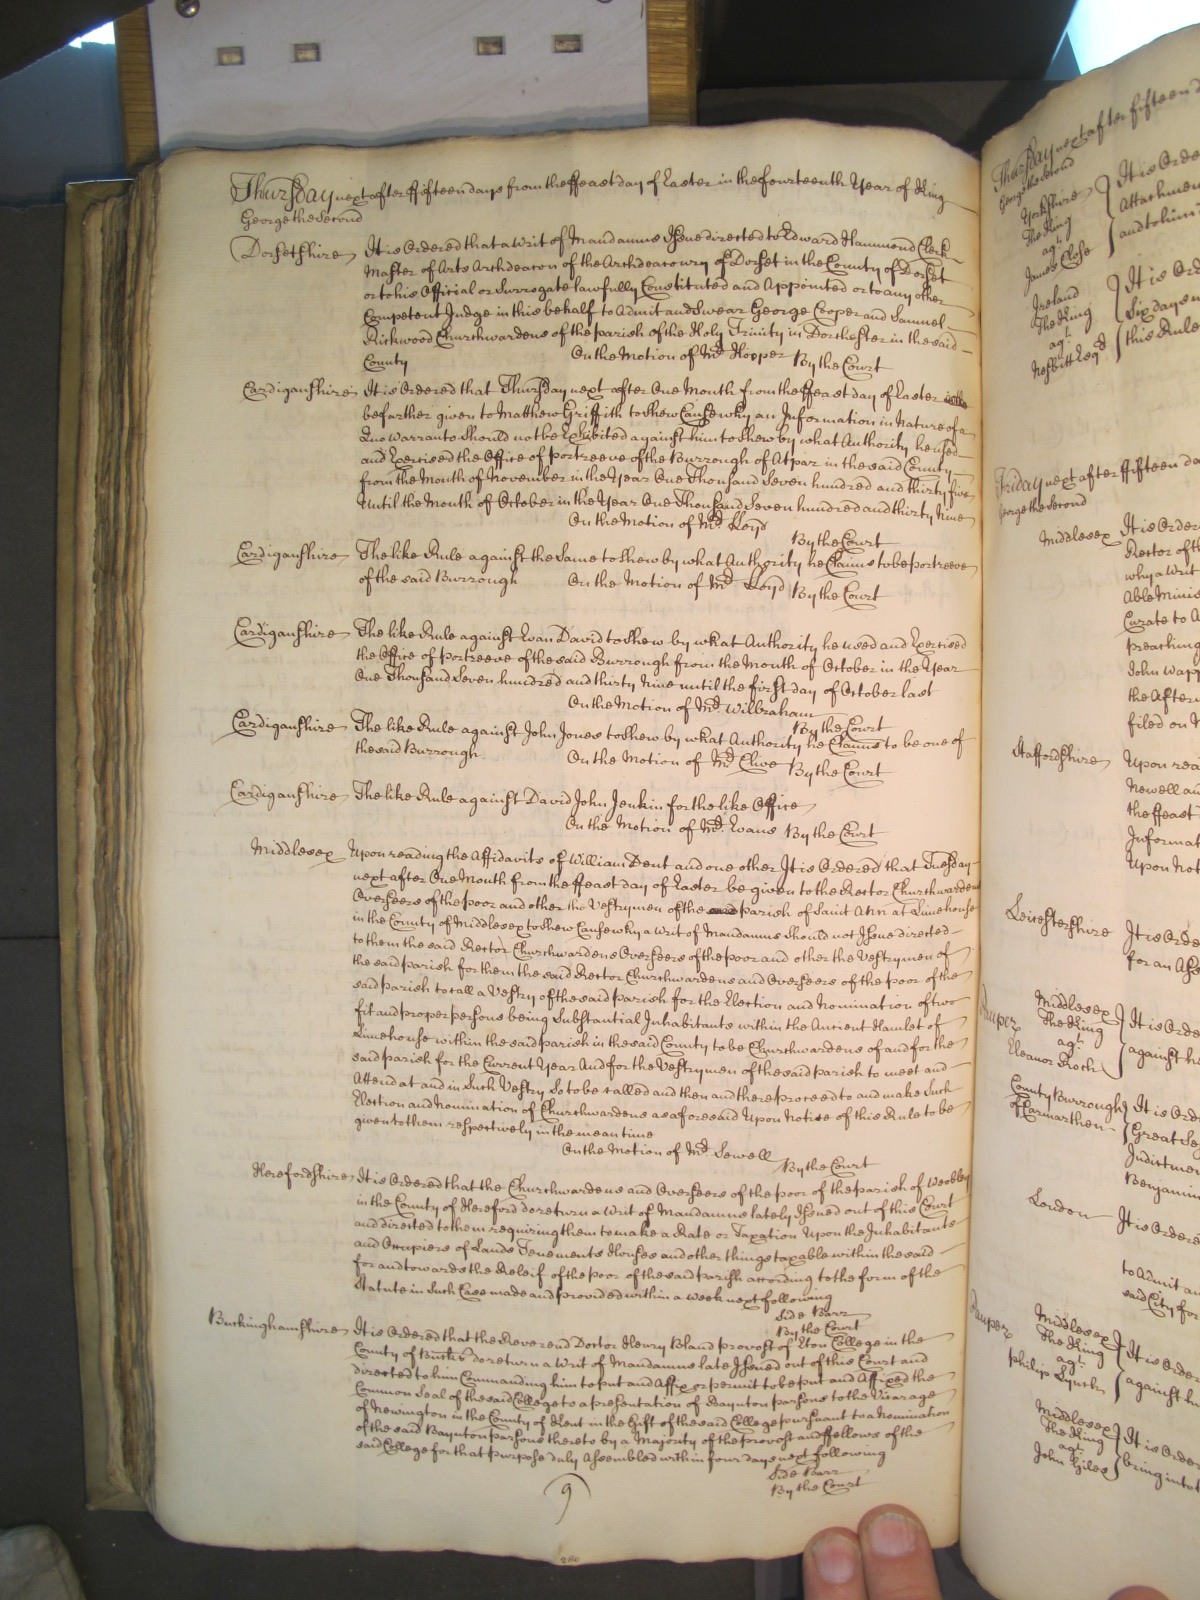 Thursday next after ffifteen days from the ffeast day of Easter in the fourteenth Year of King
George the Second
Dorsetshire It is Ordered that a Writ of Mandamus Issue directed to Edward Hammond Clerk
Master of Arts Archdeacon of the Archdeaconry of Dorset in the County of Dorset
or to his Official or Surrogate lawfully Constituted and Appointed or to any other
Competent Judge in this behalf to Admit and Swear George Cooper and Samuel
Rickwood Churchwardens of the parish of the Holy Trinity in Dorchester in the said
County On the Motion of Mr. Hopper By the Court
Cardiganshire It is Ordered that Thursday next after One Month from the ffeast day of Easter
be further given to Matthew Griffith to shew Cause why an Information in Nature of a
Quo Warranto should not be Exhibited against him to shew by what Authority he used
and Exercised the Office of portreeve of the Burrough of Atpar in the said County
from the Month of November in the Year One Thousand Seven hundred and thirty five
Until the Month of October in the Year One Thousand Seven hundred and thirty Nine
On the Motion of Mr. Lloyd
By the Court
Cardiganshire The like Rule against the Same to shew by what Authority he Claims to be portreeve
of the said Burrough On the Motion of Mr. Lloyd By the Court
Cardiganshire The like Rule against Evan David to shew by what Authority he used and Exercised
the Office of portreeve of the said Burrough from the Month of October in the Year
One Thousand Seven hundred and thirty Nine until the first day of October last
On the Motion of Mr. Wilbraham
By the Court
Cardiganshire The like Rule against John Jones to shew by what Authority he Claims to be one of
the said Burrough On the Motion of Mr. Clive By the Court
Cardiganshire The like Rule against David John Jenkin for the like Office
On the Motion of Mr. Evans By the Court
Middlesex Upon reading the Affidavits of William Dent and one other It is Ordered that Tuesday
next after One Month from the ffeast day of Easter be given to the Rector Churchwardens
Overseers of the poor and other the Vestrymen of the parish of Saint Ann at Limehouse
in the County of Middlesex to shew Cause why a Writ of Mandamus should not Issue directed
to them the said Rector Churchwardens Overseers of the poor and other the Vestrymen of
the said parish for them the said Rector Churchwardens and Overseers of the poor of the
said parish to call a Vestry of the said parish for the Election and Nomination of two
fit and proper persons being Substantial Inhabitants within the Ancient Hamlet of
Limehouse within the said parish in the said County to be Churchwardens of and for the
said parish for the Current Year And for the Vestrymen of the said parish to meet and
Attend at and in Such Vestry So to be called and then and there proceed to and make Such
Election and Nomination of Churchwardens as aforesaid Upon Notice of this Rule to be
given to them respectively in the mean time
On the Motion of Mr. Sewell
By the Court
Herefordshire It is Ordered that the Churchwardens and Overseers of the poor of the parish of Weobley
in the County of Hereford do return a Writ of Mandamus lately Issued out of this Court
and directed to them requiring them to make a Rate or Taxation Upon the Inhabitants
and Occupiers of Lands Tenements Houses and other things taxable within the said
for and towards the Releif of the poor of the said parish according to the form of the
Statute in Such Case made and provided within a week next following
Side Barr
By the Court
Buckinghamshire It is Ordered that the Reverend Doctor Henry Bland provost of Eton College in the
County of Bucks do return a Writ of Mandamus late Issued out of this Court and
directed to him Commanding him to put and Affix or permit to be put and Affixed the
Common Seal of the said College to a presentation of Baynton parsons to the Vicarage
of Newington in the County of Kent in the Gift of the said College pursuant to a Nomination
of the said Baynton parsons thereto by a Majority of the provost and ffellows of the
said College for that purpose duly Assembled within four days next following
Side Barr
By the Court
9
280
Thursday next after fifteen
George the Second
Yorkshire
The King
agt.
James Close
It is Orde
Attachmen
and to him
Ireland
The King
agt.
Nesbitt Esqr.
It is Orde
Six days
this Rule
Friday next after ffifteen da
George the Second
Middlesex It is Order
Rector of th
why a Writ
Able Minis
Curate to A
preaching
John Wapp
the After
filed on
Staffordshire Upon rea
Newell an
the ffeast
Informat
Upon Not
Leicestershire It is Orde
for an Ass
Middlesex
The King
agt.
Eleanor Roch
It is Orde
against h
County Burrough
of Carmarthen
It is Ord
Great Se
Indictmen
Benjamin
London It is Ordere
to Admit an
said City for
Pauper
Middlesex
The King
agt.
Philip Lynch
It is Order
against h
Middlesex
The King
agt.
John Giles
It is Orde
bring into